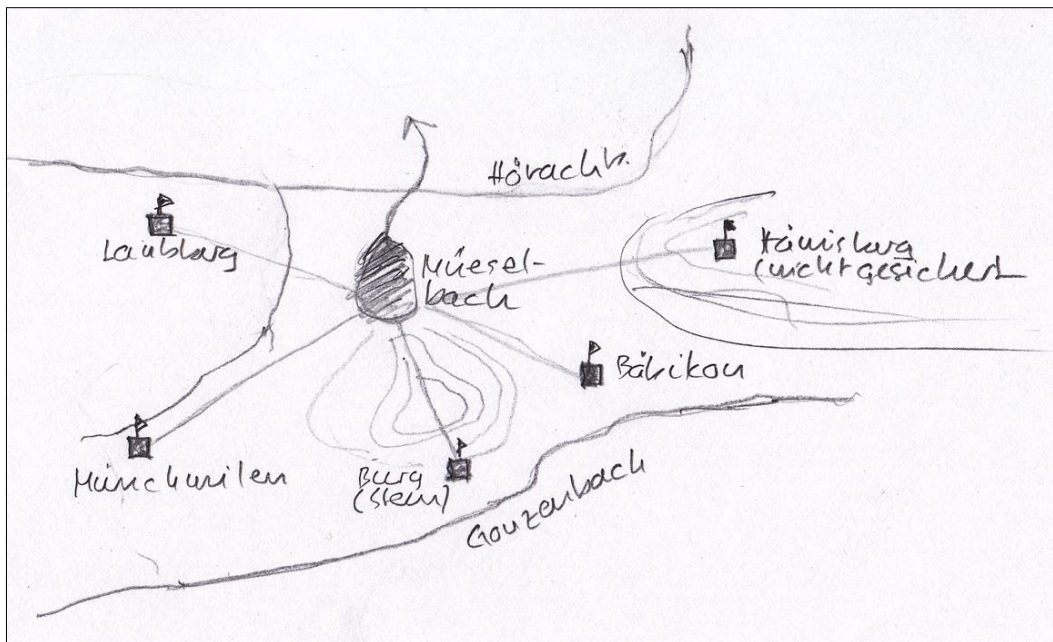 Hörachb.
Laubberg
Müesel-
bach
Hämisberg
(nicht gesichert
Bäbikon
Münchwilen
Burg
(Stein)
Gonzenbach